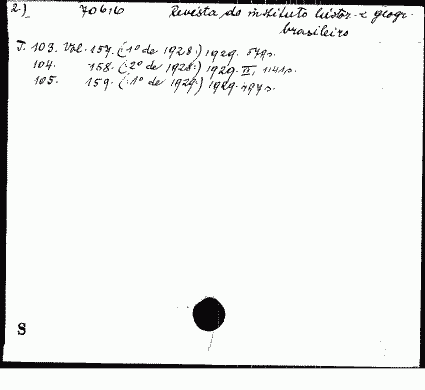 2.) 70616 Revista do instituto histor. e geogr.
brasileiro
T. 103. Vol. 157. (1º de 1928.) 1929. 579s.
104. 158. (2º de 1928.) 1929. II, 1141s.
105. 159. (1º de 1929.) 1929. 497s.
S